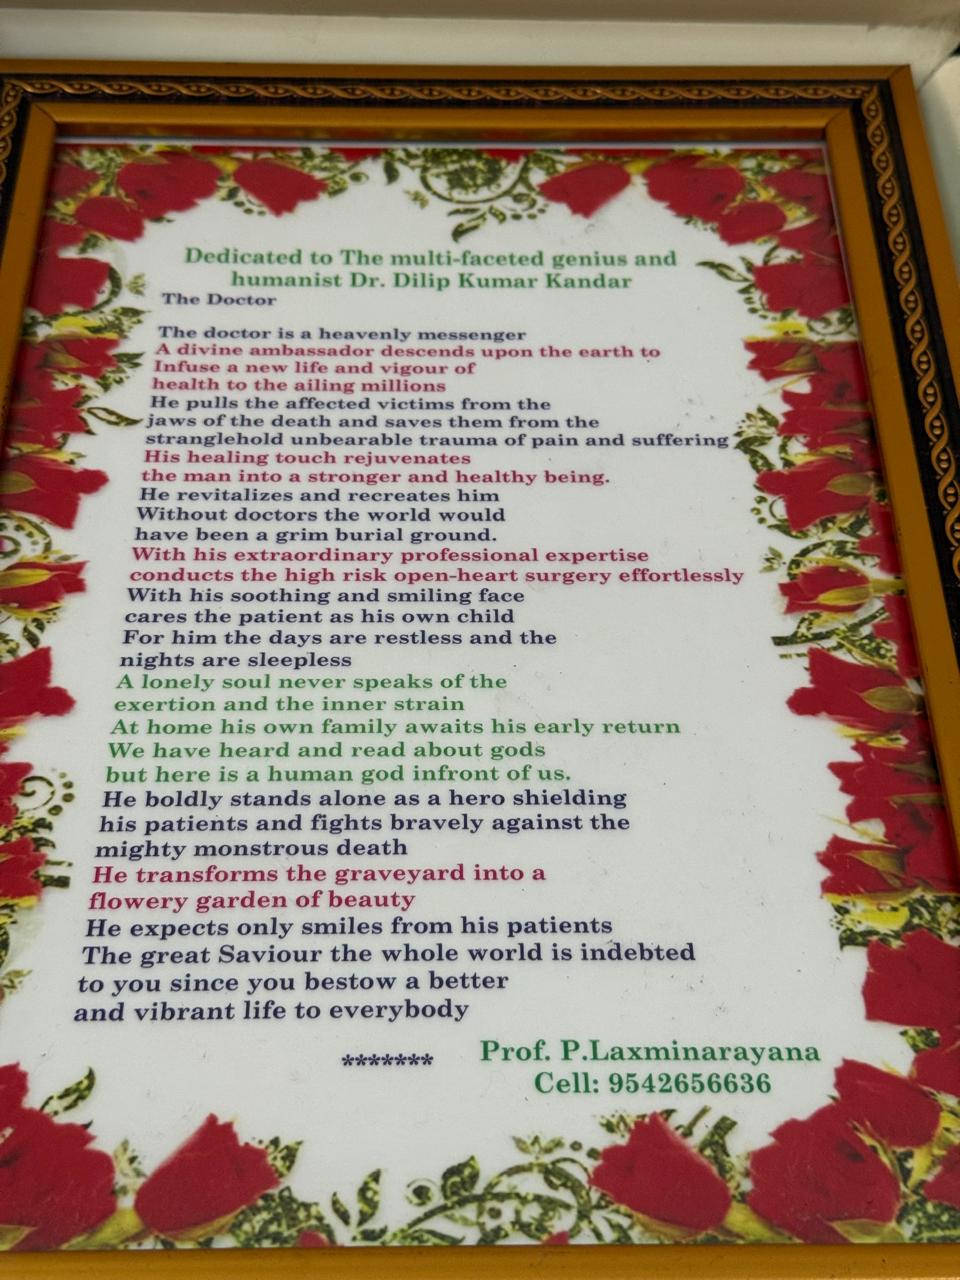 Dedicated to The multi-faceted genius and
humanist Dr. Dilip Kumar Kandar
The Doctor
The doctor is a heavenly messenger
A divine ambassador descends upon the earth to
Infuse a new life and vigour of
health to the ailing millions
He pulls the affected victims from the
jaws of the death and saves them from the
stranglehold unbearable trauma of pain and suffering
His healing touch rejuvenates
the man into a stronger and healthy being.
He revitalizes and recreates him
Without doctors the world would
have been a grim burial ground.
With his extraordinary professional expertise
conducts the high risk open-heart surgery effortlessly
With his soothing and smiling face
cares the patient as his own child
For him the days are restless and the
nights are sleepless
A lonely soul never speaks of the
exertion and the inner strain
At home his own family awaits his early return
We have heard and read about gods
but here is a human god infront of us.
He boldly stands alone as a hero shielding
his patients and fights bravely against the
mighty monstrous death
He transforms the graveyard into a
flowery garden of beauty
He expects only smiles from his patients
The great Saviour the whole world is indebted
to you since you bestow a better
and vibrant life to everybody
******* Prof. P.Laxminarayana
Cell: 9542656636